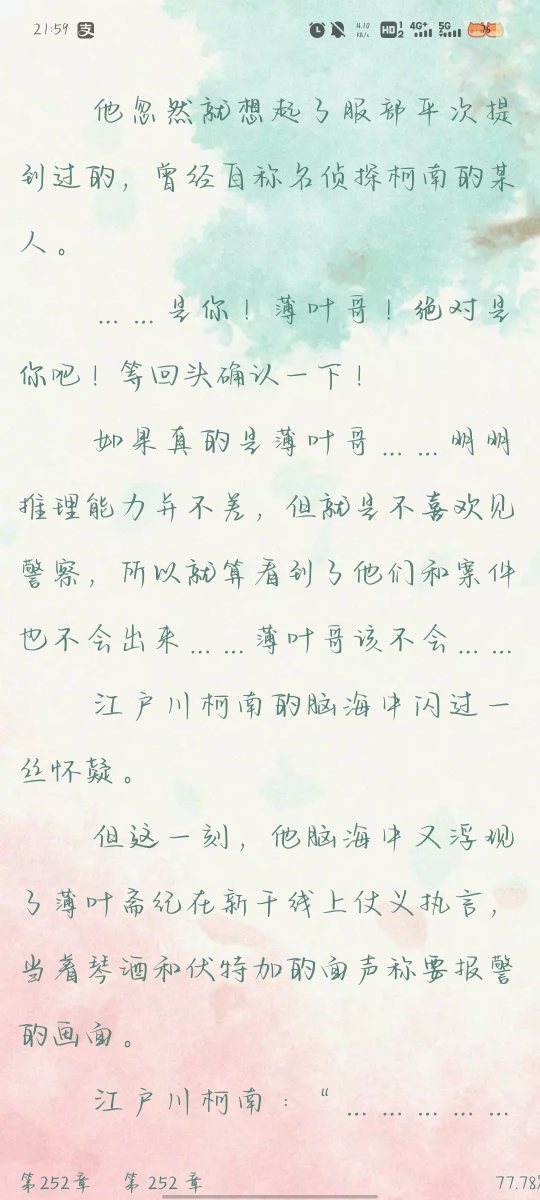 21:59 支 4.10 KB/s HD 1 2 4G+ 5G 36
他忽然就想起了服部平次提
到过的，曾经自称名侦探柯南的某
人。
……是你！薄叶哥！绝对是
你吧！等回头确认一下！
如果真的是薄叶哥……明明
推理能力并不差，但就是不喜欢见
警察，所以就算看到了他们和案件
也不会出来……薄叶哥该不会……
江户川柯南的脑海中闪过一
丝怀疑。
但这一刻，他脑海中又浮现
了薄叶斋纪在新干线上仗义执言，
当着琴酒和伏特加的面声称要报警
的画面。
江户川柯南：“……………
第252章 第 252 章 77.78%